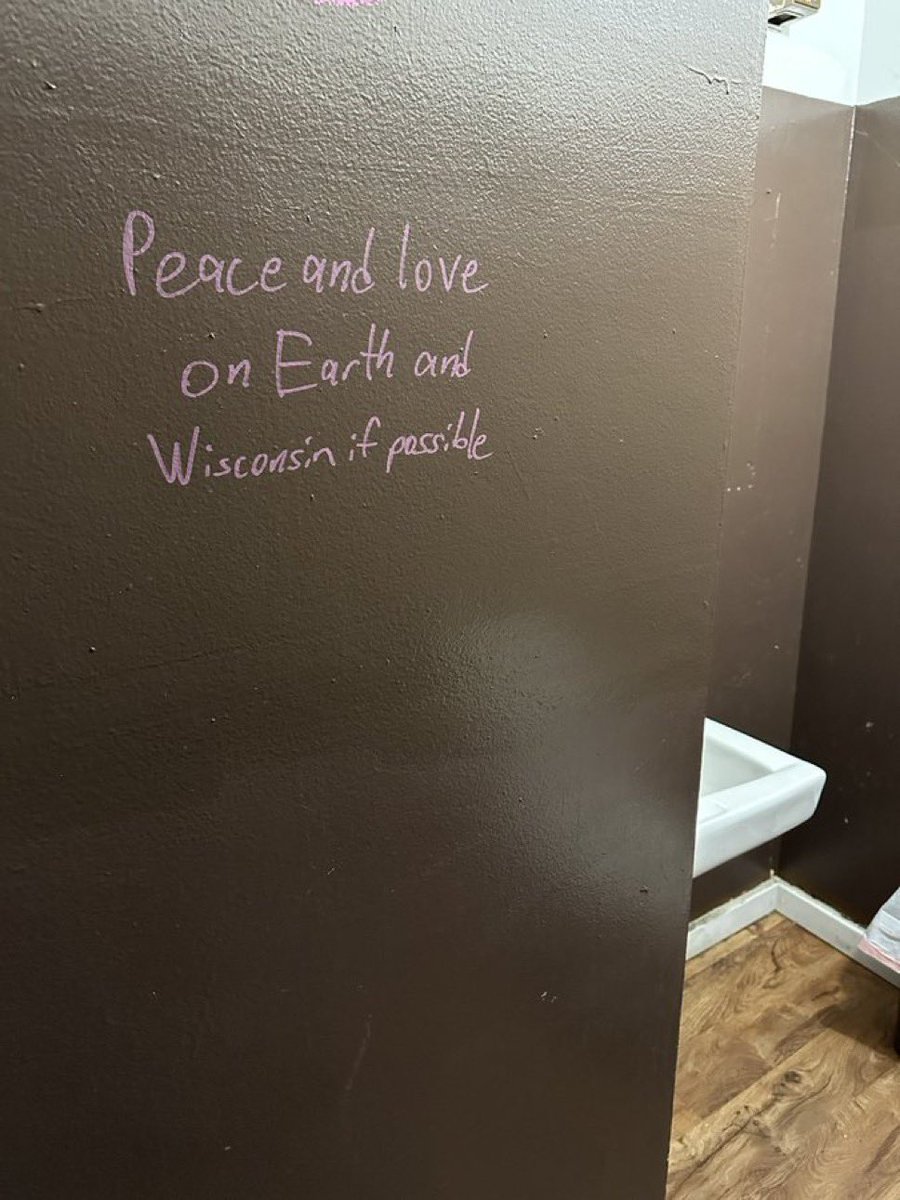 Peace and love
on Earth and
Wisconsin if possible